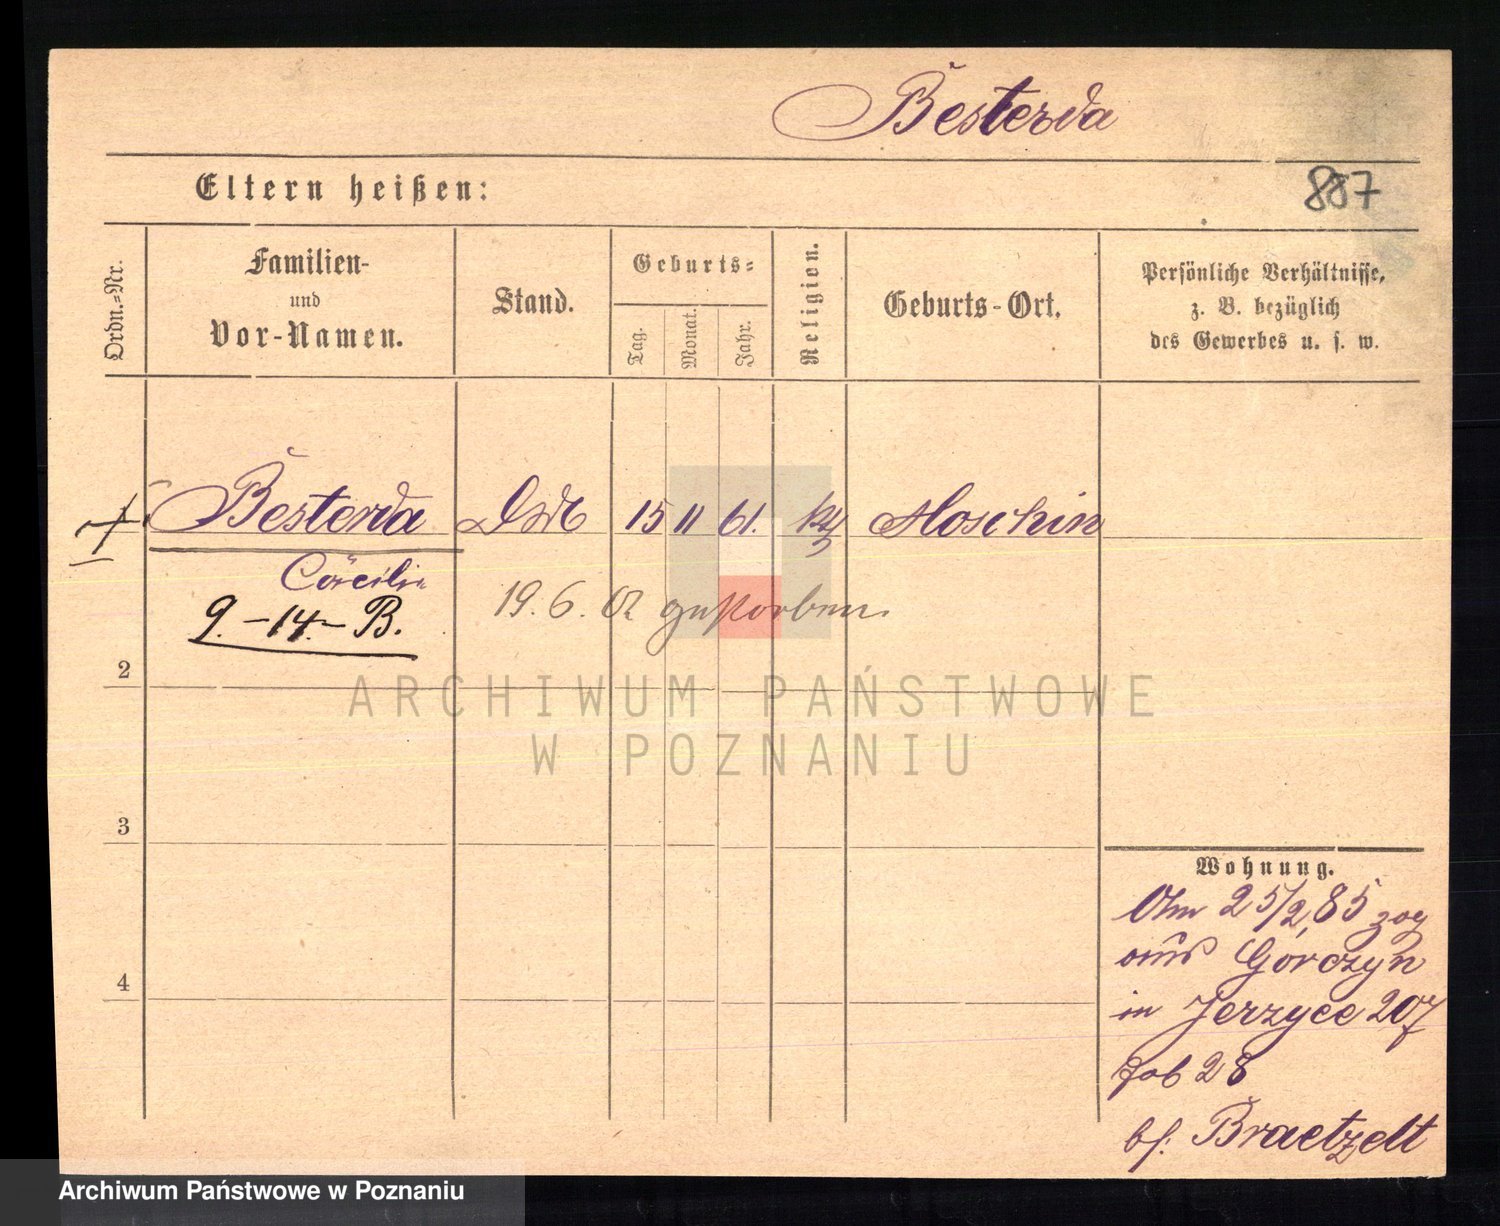 Besterda
Eltern heißen:
887
Ordn.=Nr.
Familien-
und
Vor-Namen.
Stand.
Geburts=
Tag.
Monat.
Jahr.
Religion.
Geburts-Ort.
Persönliche Verhältnisse,
z. B. bezüglich
des Gewerbes u. s. w.
1 Besterda 15 11 61. Moschin
Cäcilie
9.-14.- B.
19. 6. 02 gestorben
2
3
4
ARCHIWUM PAŃSTWOWE
W POZNANIU
Wohnung.
Am 25/2, 85 zog
aus Górczyn
in Jerzyce 207
28
bf. Braetzelt
Archiwum Państwowe w Poznaniu